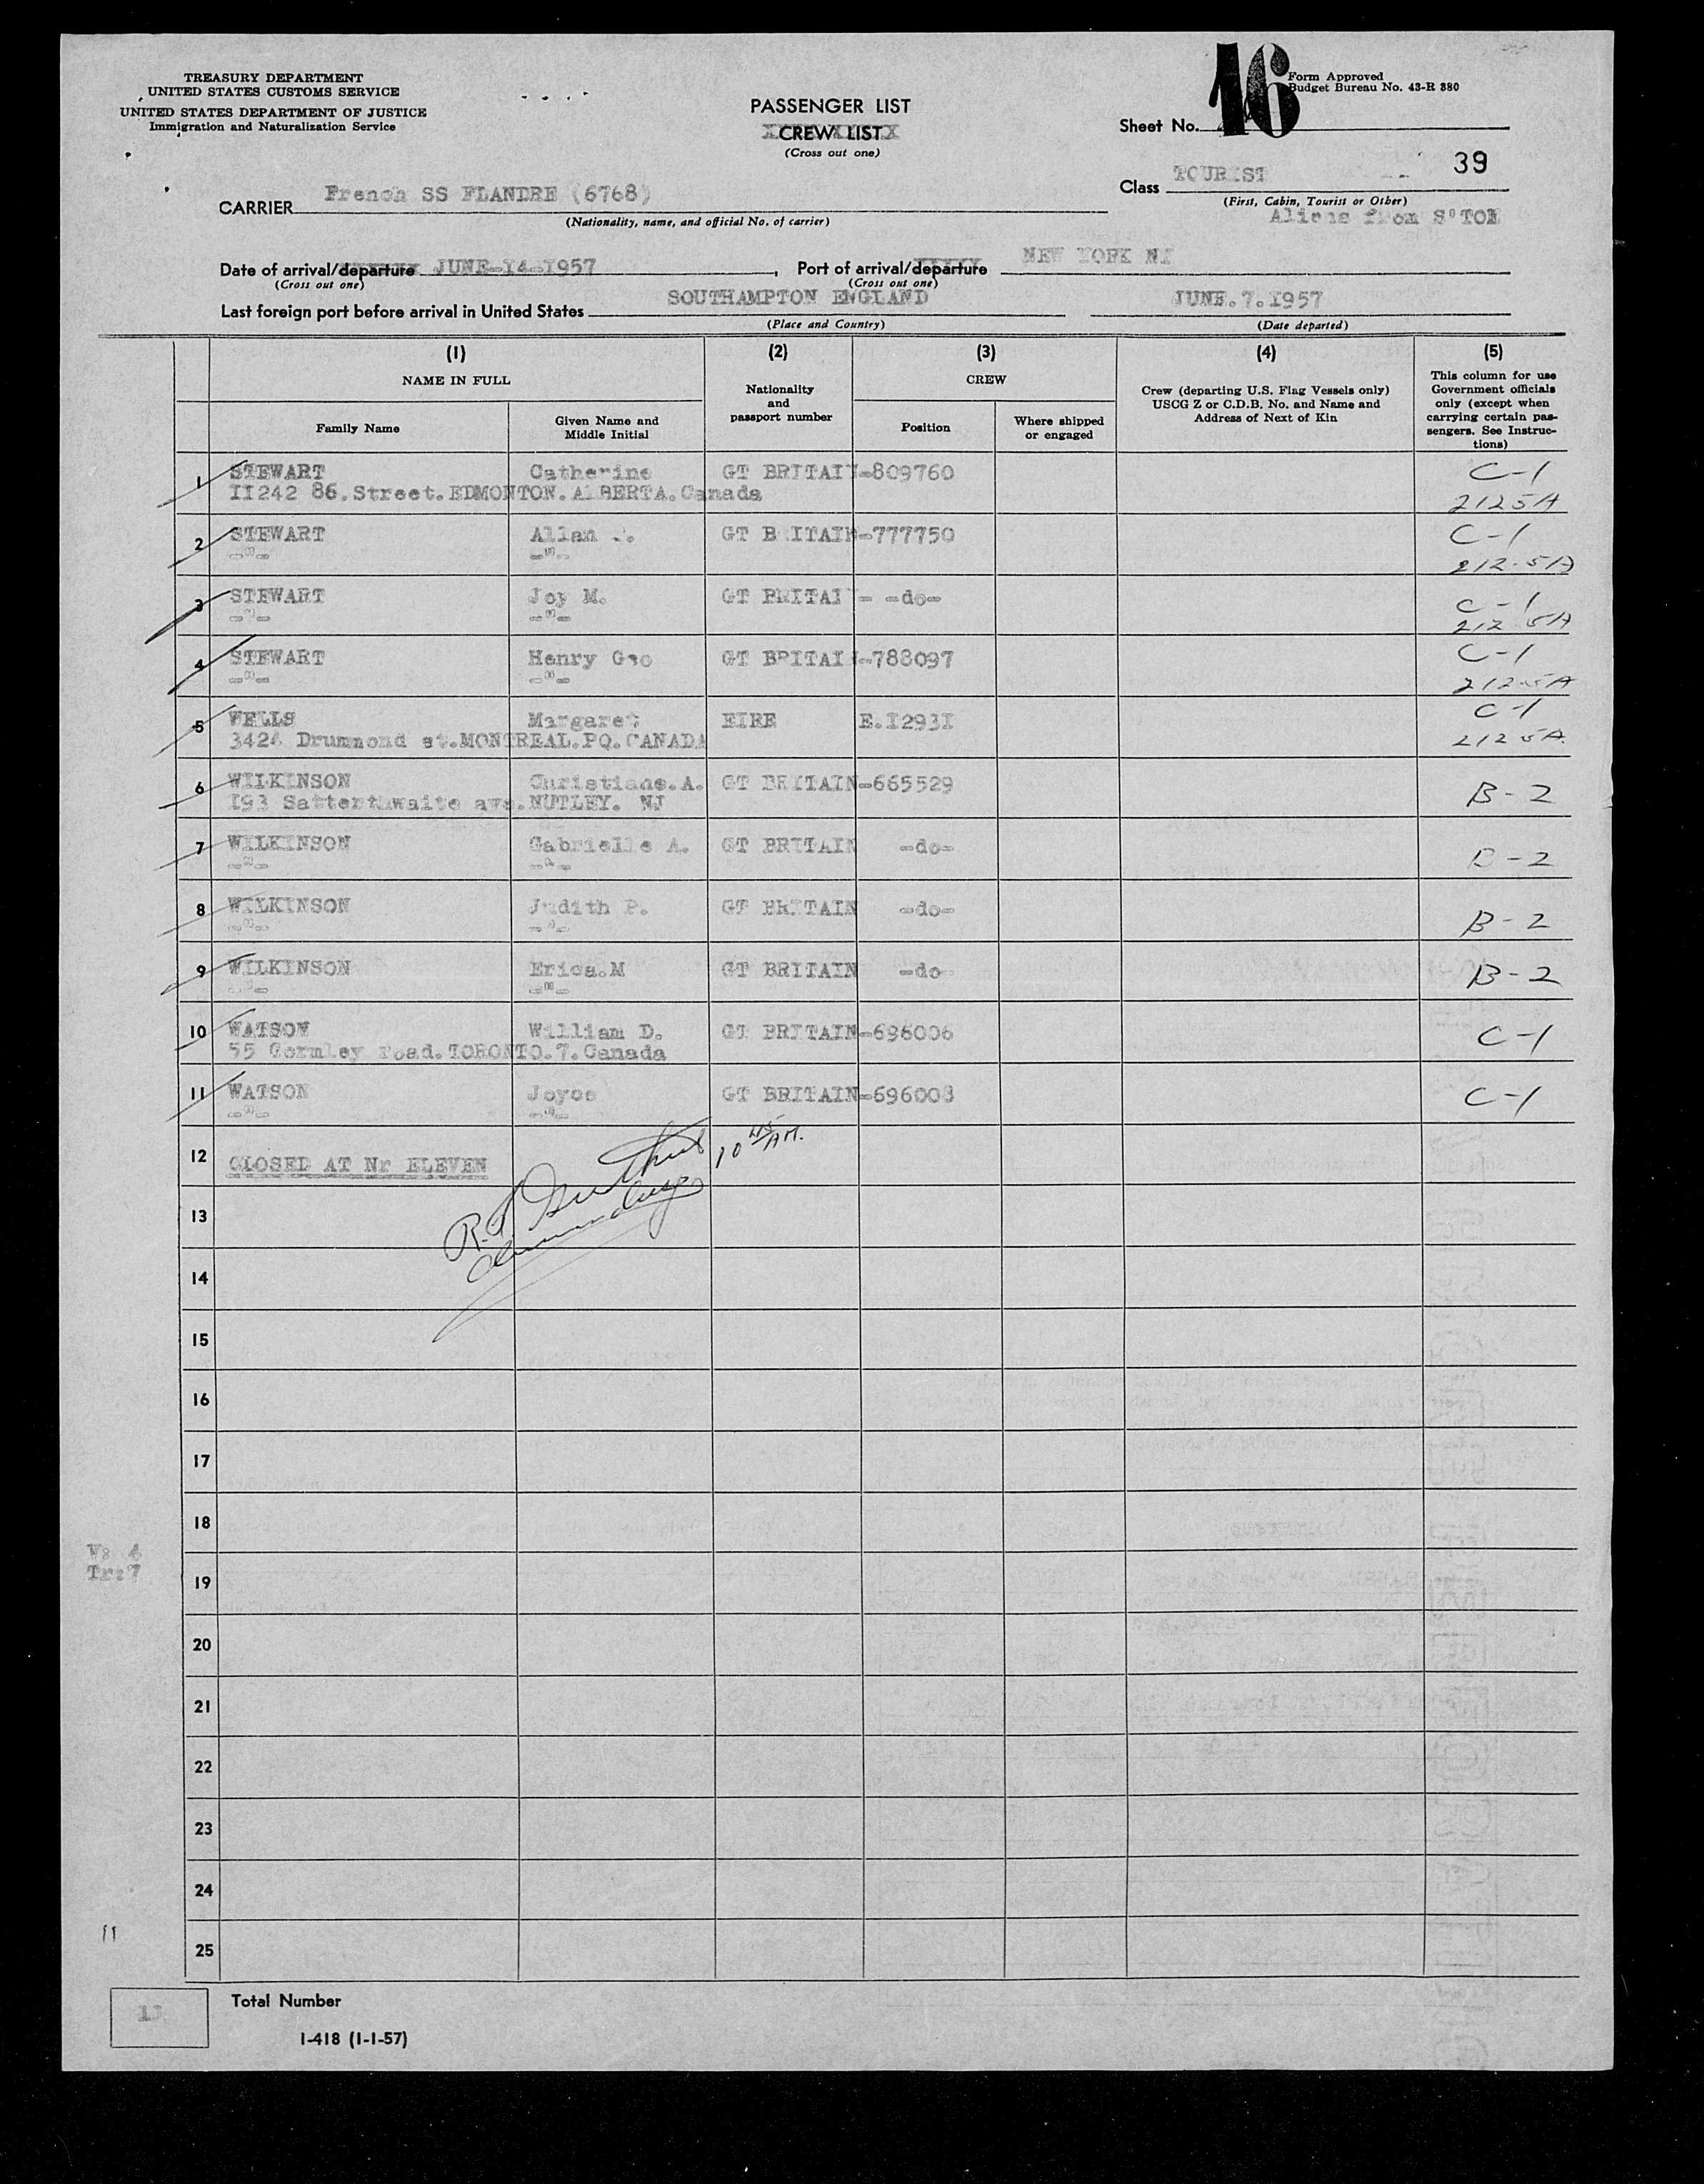 TREASURY DEPARTMENT
UNITED STATES CUSTOMS SERVICE
UNITED STATES DEPARTMENT OF JUSTICE
Immigration and Naturalization Service
PASSENGER LIST
CREW LIST
(Cross out one)
16
Form Approved
Budget Bureau No. 43-R 380
Sheet No.
39
Class TOURIST
(First, Cabin, Tourist or Other)
Aliens from S'TON
CARRIER French SS FLANDRE (6768)
(Nationality, name, and official No. of carrier)
Date of arrival/departure JUNE-14-1957, Port of arrival/departure NEW YORK NY
(Cross out one) (Cross out one)
Last foreign port before arrival in United States SOUTHAMPTON ENGLAND JUNE.7.1957
(Place and Country) (Date departed)
(1) (2) (3) (4) (5)
NAME IN FULL
Family Name
Given Name and Middle Initial
Nationality and passport number
CREW
Position
Where shipped or engaged
Crew (departing U.S. Flag Vessels only) USCG Z or C.D.B. No. and Name and Address of Next of Kin
This column for use Government officials only (except when carrying certain passengers. See Instructions)
1 STEWART Catherine GT BRITAIN-809760 C-1
II242 86.Street.EDMONTON.ALBERTA.Canada 2125A
2 STEWART Allan GT BRITAIN-777750 C-1
-"- -"- 212.5A
3 STEWART Joy M. GT BRITAIN- -do- C-1
-"- -"- 212 5A
4 STEWART Henry Geo GT BRITAIN-788097 C-1
-"- -"- 212.5A
5 WELLS Margaret EIRE E.I293I C-1
3424 Drummond st.MONTREAL.PQ.CANADA 212 5A
6 WILKINSON Christiane.A. GT BRITAIN-665529 B-2
I93 Satterthwaite ave.NUTLEY. NJ
7 WILKINSON Gabrielle A. GT BRITAIN -do- B-2
-"- -"-
8 WILKINSON Judith P. GT BRITAIN -do- B-2
-"- -"-
9 WILKINSON Erica.M GT BRITAIN -do- B-2
-"- -"-
10 WATSON William D. GT BRITAIN-696006 C-1
55 Gormley road.TORONTO.7.Canada
11 WATSON Joyce GT BRITAIN-696008 C-1
-"- -"-
12 CLOSED AT Nr ELEVEN 10 45 AM.
13
14
15
16
17
18
19
20
21
22
23
24
25
V: 4
Tr:7
11
11
Total Number
I-418 (1-1-57)